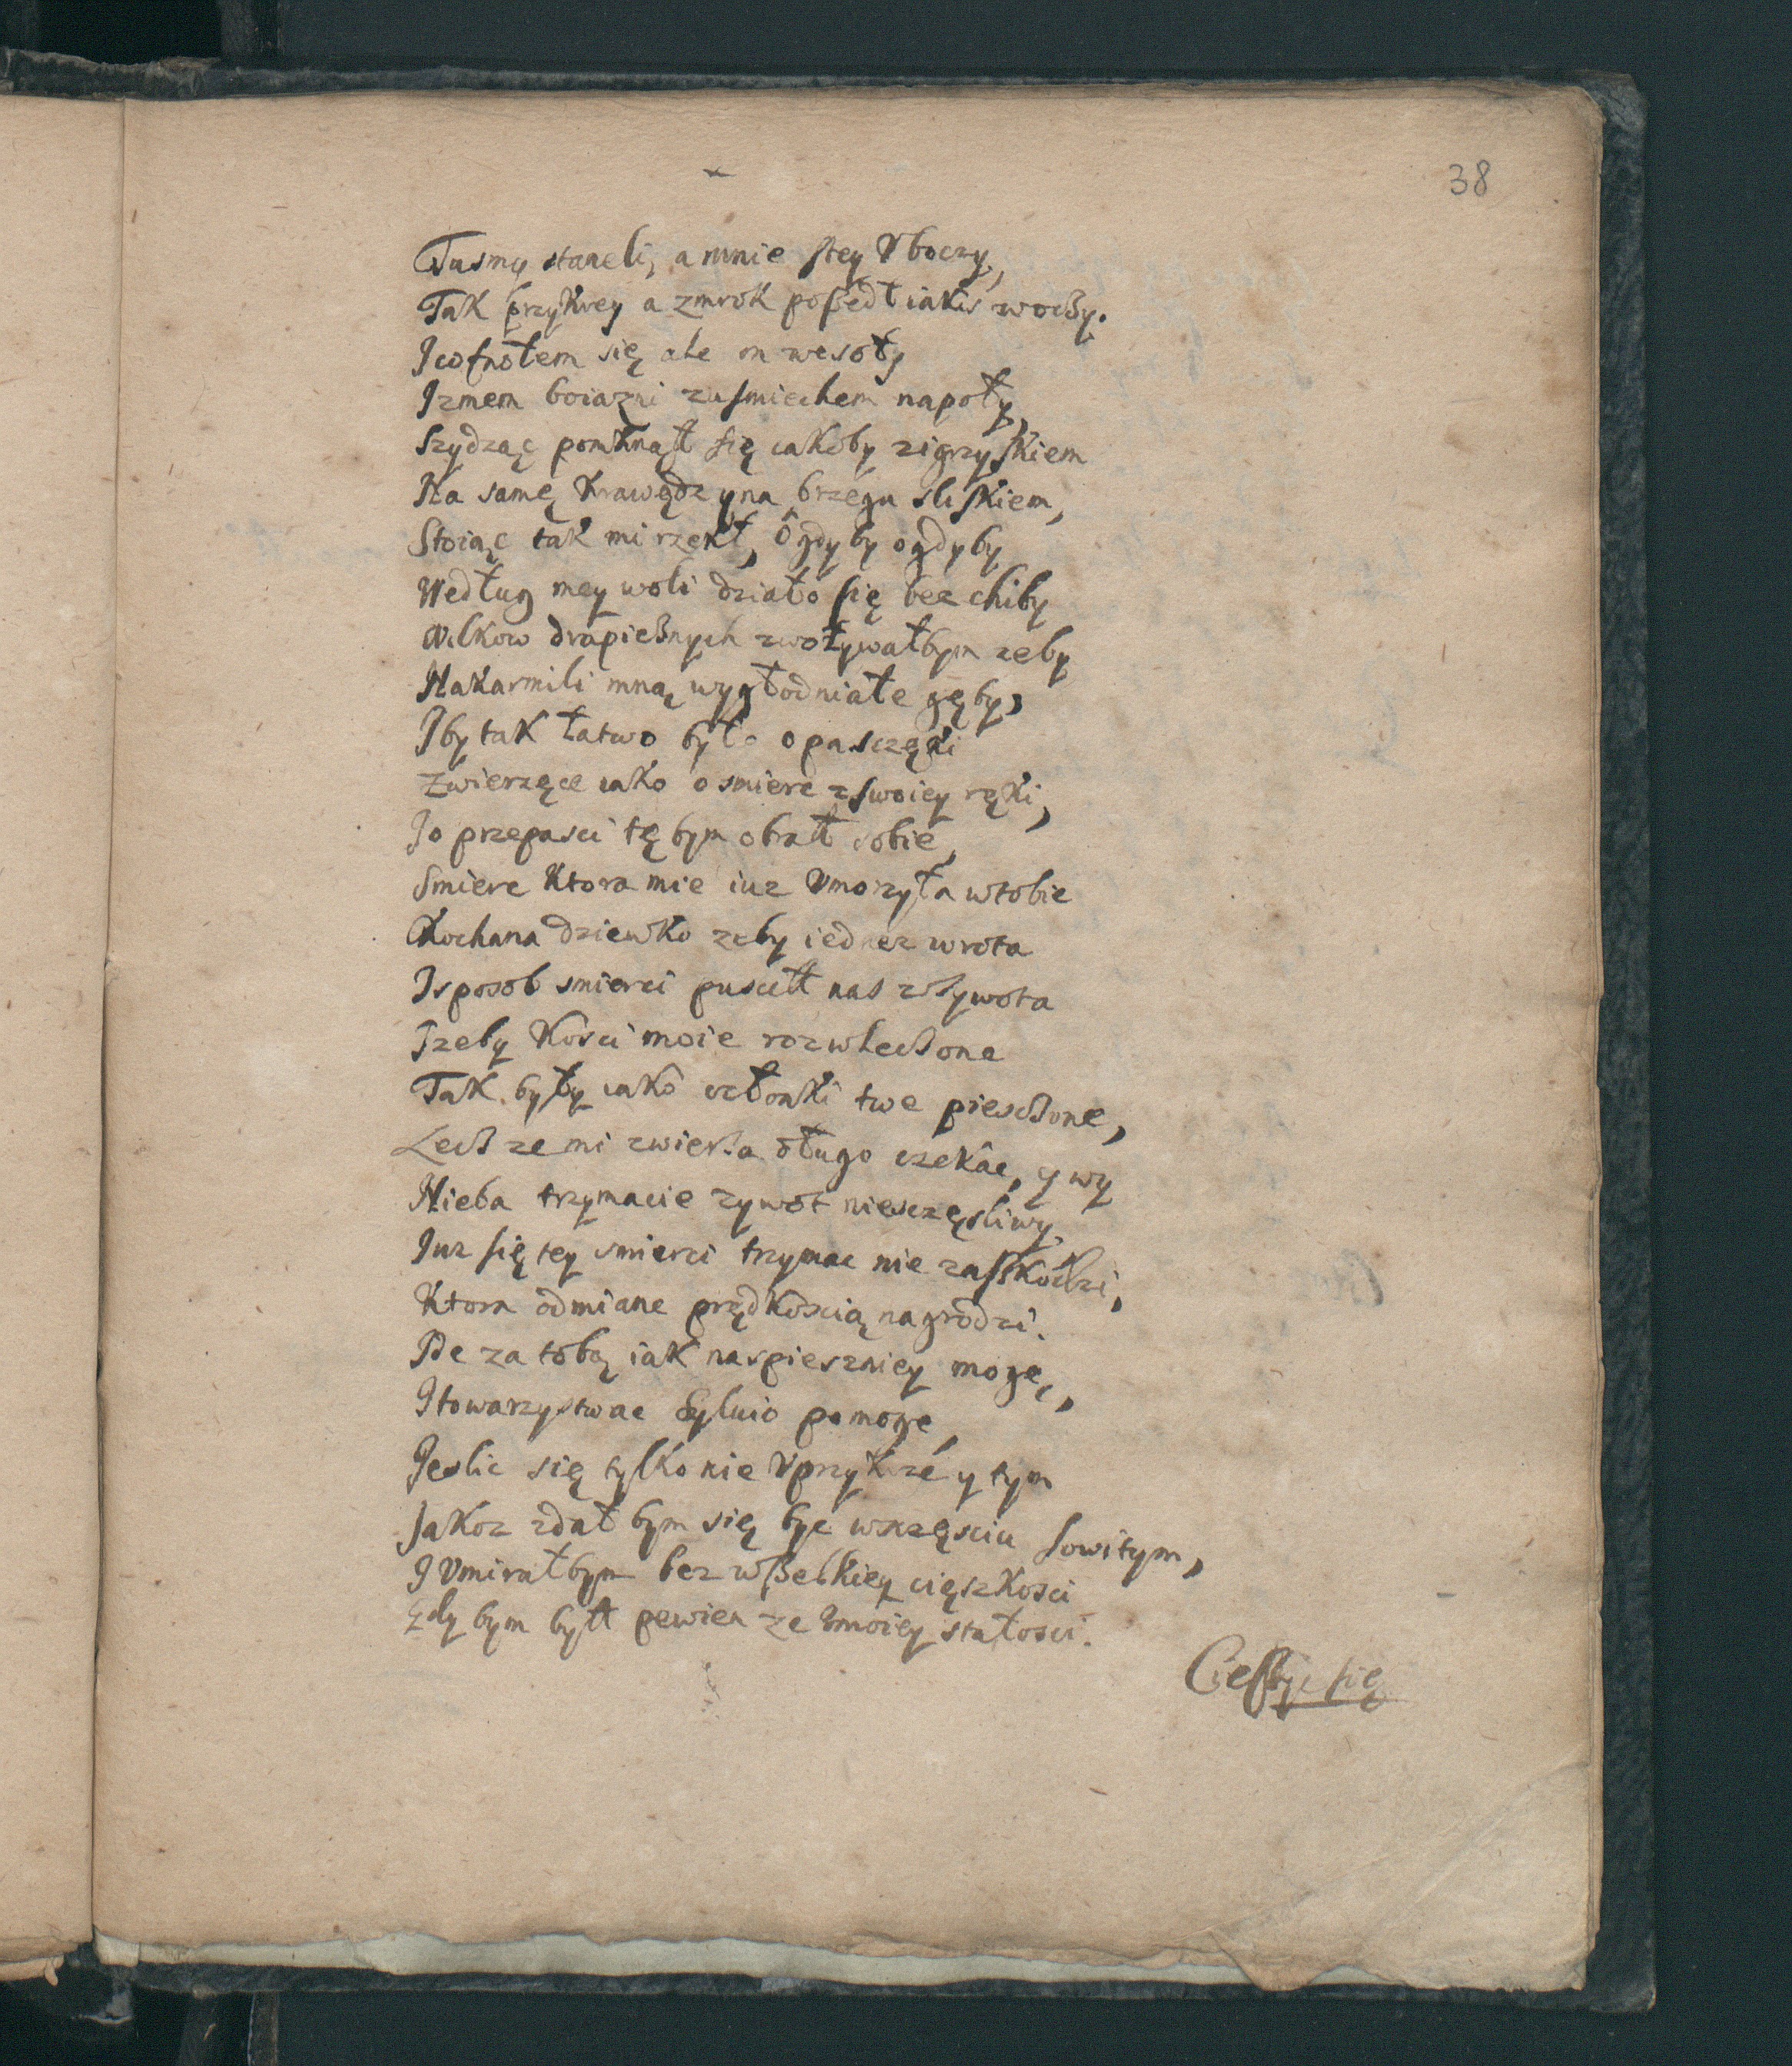 38
Tusmy staneli, a mnie stey Vboczy,
Tak przykrey a zmrok poszedł iakis woczy.
Jcofnołem się ale on wesoły
Jzmem boiazni zusmiechem napoły,
Szydząc pomknął się iakoby zigrzyskiem
Na samę krawędz yna brzegu sliskiem,
Stoiąc tak mi rzekł, Ô gdyby ogdyby
Według mey woli działo się bez chiby
Wilkow drapieżnych zwoływałbym zeby
Nakarmili mną wygłodniałe gęby,
Jby tak łatwo było opasczęki
Zwierzęce iako o smierc zswoiey ręki,
Jo przepasci tę bym obrał sobie,
Smierc ktora mie iuz Vmorzyła wtobie
Kochana dziewko zeby iednez wrota
Jsposob smierci puscił nas zżywota
Jzeby kosci moie rozwleczone
Tak były iako członki twe piesczone,
Lecz ze mi zwierza długo czekac, y wy
Nieba trzymacie zywot niesczęsliwy,
Iuz się tey smierci trzymac nie zaszkodzi,
Ktora odmiane prędkoscią nagrodzi.
Jde za tobą iak naspieszniey mogę,
Jtowarzystwac Sylwio pomogę,
Jeslic się tylko nie Vprzykrzé y tym
Jakoz zdał bym się byc wszczęsciu sowitym,
J Vmirałbym bez wszelkiey cięszkosci
Gdy bym był pewien ze Vmoiey stałosci.